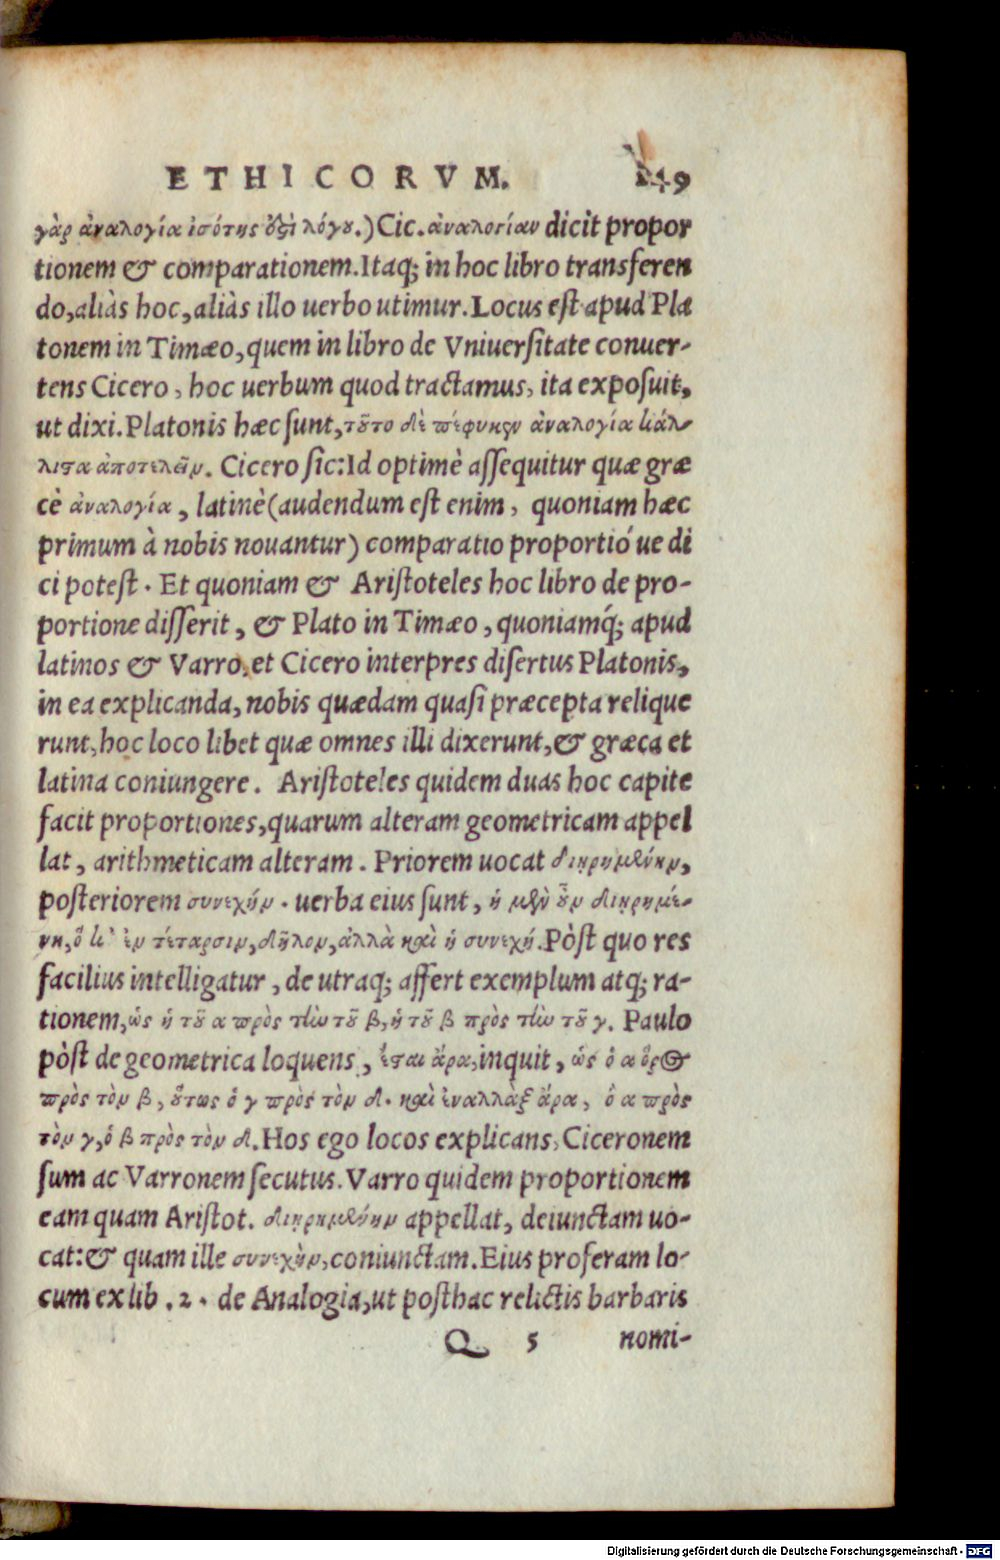 ETHICORVM. 249
γὰρ ἀναλογία ἰσότης ὅξι λόγου.) Cic. ἀναλογίαν dicit propor
tionem & comparationem. Itaq; in hoc libro transferen
do, aliàs hoc, aliàs illo uerbo utimur. Locus est apud Pla
tonem in Timæo, quem in libro de Vniuersitate conuer-
tens Cicero, hoc uerbum quod tractamus, ita exposuit,
ut dixi. Platonis hæc sunt, τοῦτο δὲ πέφυκεν ἀναλογία κάλ-
λιστα ἀποτελεῖν. Cicero sic: Id optimè assequitur quæ græ
cè ἀναλογία, latinè (audendum est enim, quoniam hæc
primum à nobis nouantur) comparatio proportió ue di
ci potest. Et quoniam & Aristoteles hoc libro de pro-
portione disserit, & Plato in Timæo, quoniamq́; apud
latinos & Varro et Cicero interpres disertus Platonis,
in ea explicanda, nobis quædam quasi præcepta relique
runt, hoc loco libet quæ omnes illi dixerunt, & græca et
latina coniungere. Aristoteles quidem duas hoc capite
facit proportiones, quarum alteram geometricam appel
lat, arithmeticam alteram. Priorem uocat διῃρημένην,
posteriorem συνεχήν. uerba eius sunt, ἡ μὲν οὖν διῃρημέ-
νη, ὅ ἐν τέταρσιν, δῆλον, ἀλλὰ καὶ ἡ συνεχή. Pòst quo res
facilius intelligatur, de utraq; affert exemplum atq; ra-
tionem, ὡς ἡ τοῦ α πρὸς τὴν τοῦ β, ἡ τοῦ β πρὸς τὴν τοῦ γ. Paulo
pòst de geometrica loquens, ἔσται ἄρα, inquit, ὡς ὁ α ὅρος
πρὸς τὸν β, οὕτως ὁ γ πρὸς τὸν δ. καὶ ἐναλλὰξ ἄρα, ὁ α πρὸς
τὸν γ, ὁ β πρὸς τὸν δ. Hos ego locos explicans, Ciceronem
sum ac Varronem secutus. Varro quidem proportionem
eam quam Aristot. διῃρημένην appellat, deiunctam uo-
cat: & quam ille συνεχὴν, coniunctam. Eius proferam lo-
cum ex lib. 2. de Analogia, ut posthac relictis barbaris
Q 5 nomi-
Digitalisierung gefördert durch die Deutsche Forschungsgemeinschaft - DFG